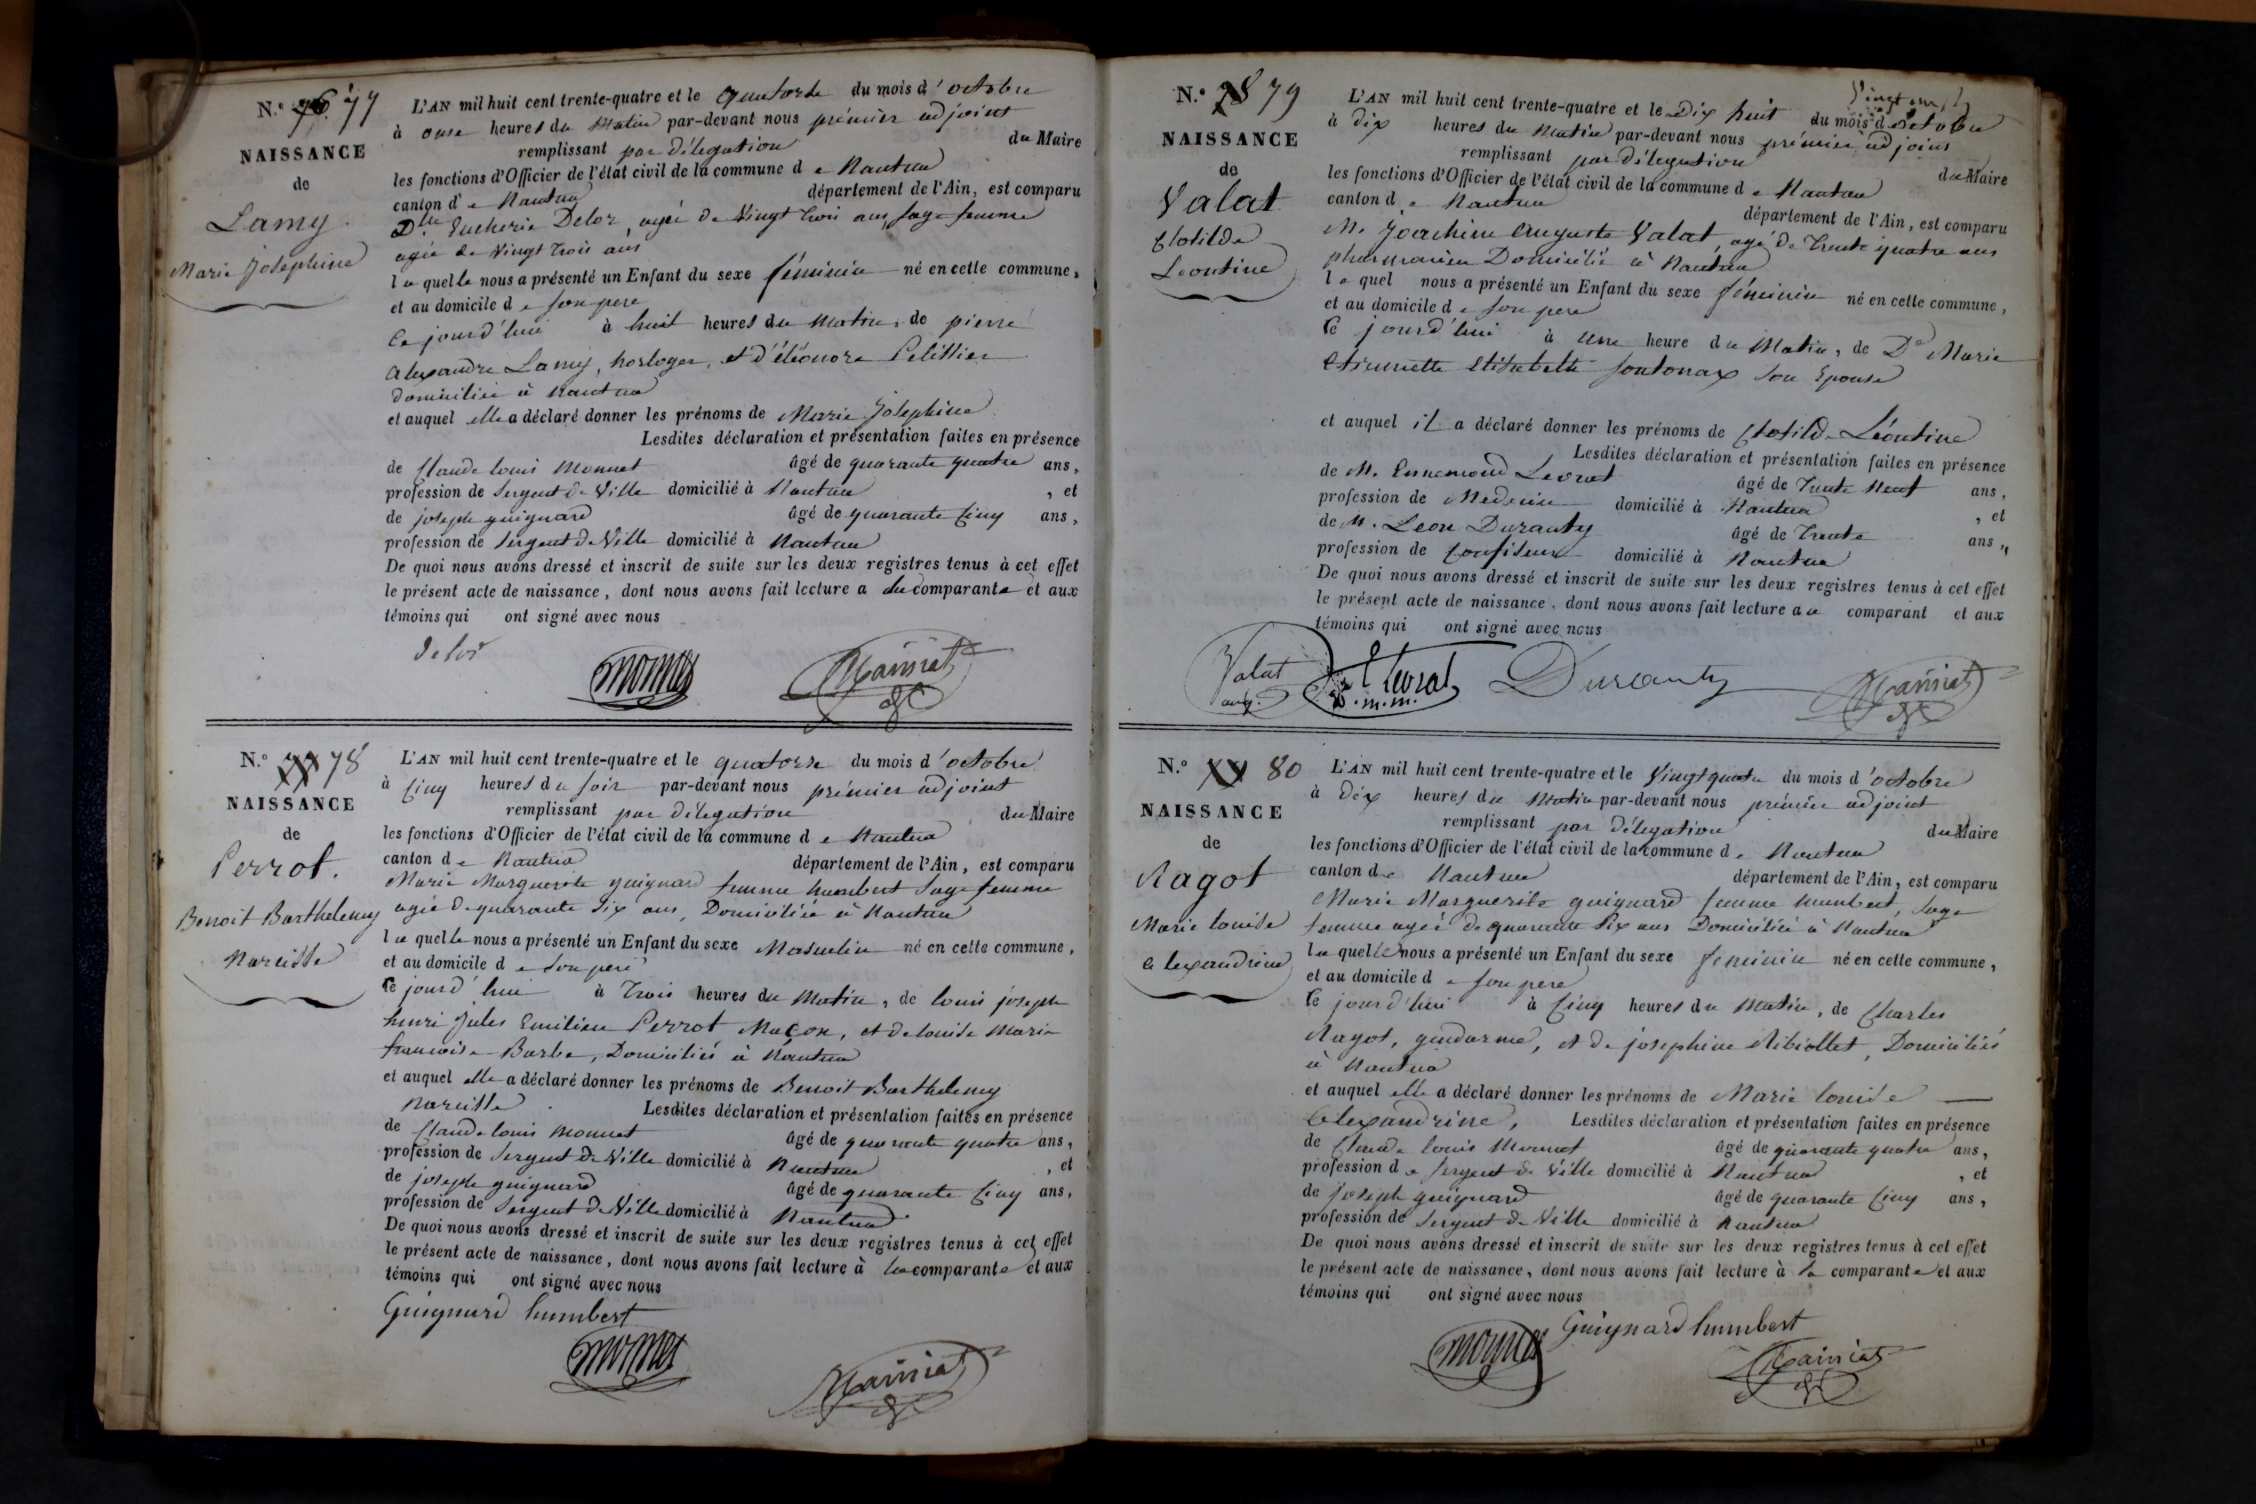 N.° 77
NAISSANCE
de
Lamy
Marie Josephine
L'AN mil huit cent trente-quatre et le quatorze du mois d'octobre
à onze heures du matin par-devant nous prémier adjoint
remplissant par délegation du Maire
les fonctions d'Officier de l'état civil de la commune de Nantua
canton de Nantua département de l'Ain, est comparu
Dlle Eucherie Delor, agée de Vingt trois ans, sage femme
agée de Vingt trois ans
la quelle nous a présenté un Enfant du sexe féminin né en cette commune,
et au domicile de son pere
Ce jourd'hui à huit heures du matin, de pierre
alexandre Lamy, horloger, et d'éléonore Pelissier
domiciliés à Nantua
et auquel elle a déclaré donner les prénoms de Marie Josephine
Lesdites déclaration et présentation faites en présence
de Claude louis Monnet âgé de quarante quatre ans,
profession de Sergent de Ville domicilié à Nantua, et
de joseph guignard âgé de quarante Cinq ans,
profession de Sergent de Ville domicilié à Nantua
De quoi nous avons dressé et inscrit de suite sur les deux registres tenus à cet effet
le présent acte de naissance, dont nous avons fait lecture a la comparante et aux
témoins qui ont signé avec nous
delor
monnet
N.° 78
NAISSANCE
de
Perrot.
Benoit Barthelemy
Narcisse
L'AN mil huit cent trente-quatre et le quatorze du mois d'octobre
à Cinq heures du soir par-devant nous prémier adjoint
remplissant par délegation du Maire
les fonctions d'Officier de l'état civil de la commune de Nantua
canton de Nantua département de l'Ain, est comparu
Marie Marguerite guignard femme humbert Sage femme
agée de quarante Six ans, Domiciliée à Nantua
la quelle nous a présenté un Enfant du sexe Masculin né en cette commune,
et au domicile de son pere
Ce jourd'hui à Trois heures du Matin, de louis joseph
henri Jules Emilien Perrot Maçon, et de louise Marie
francoise Barbe, Domiciliés à Nantua
et auquel elle a déclaré donner les prénoms de Benoit Barthelemy
Narcisse. Lesdites déclaration et présentation faites en présence
de Claude louis Monnet âgé de quarante quatre ans,
profession de Sergent de Ville domicilié à Nantua, et
de joseph guignard âgé de quarante Cinq ans,
profession de Sergent de Ville domicilié à Nantua
De quoi nous avons dressé et inscrit de suite sur les deux registres tenus à cet effet
le présent acte de naissance, dont nous avons fait lecture à la comparante et aux
témoins qui ont signé avec nous
Guignard humbert
monnet
N.° 79
NAISSANCE
de
Valat
Clotilde
Leontine
L'AN mil huit cent trente-quatre et le Dix huit du mois d'octobre
à Dix heures du Matin par-devant nous prémier adjoint
remplissant par délegation du Maire
les fonctions d'Officier de l'état civil de la commune de Nantua
canton de Nantua département de l'Ain, est comparu
M. Joachim Auguste Valat, agé de Trente quatre ans
pharmacien Domicilié à Nantua
le quel nous a présenté un Enfant du sexe féminin né en cette commune,
et au domicile de son pere
Ce jourd'hui à Une heure du Matin, de De Marie
Etiennette Elisabeth Sontonax son Epouse
et auquel il a déclaré donner les prénoms de Clotilde Léontine
Lesdites déclaration et présentation faites en présence
de M. Ennemond Levrat âgé de Trente Neuf ans,
profession de Medecin domicilié à Nantua, et
de M. Leon Duranty âgé de Trente ans,
profession de Confiseur domicilié à Nantua
De quoi nous avons dressé et inscrit de suite sur les deux registres tenus à cet effet
le présent acte de naissance, dont nous avons fait lecture au comparant et aux
témoins qui ont signé avec nous
Valat
aug.
E Levrat
D.m.m.
Duranty
N.° 80
NAISSANCE
de
Ragot
Marie louise
alexandrine
L'AN mil huit cent trente-quatre et le Vingt quatre du mois d'octobre
à Dix heures du Matin par-devant nous prémier adjoint
remplissant par délegation du Maire
les fonctions d'Officier de l'état civil de la commune de Nantua
canton de Nantua département de l'Ain, est comparu
Marie Marguerite guignard femme humbert, Sage
femme agée de quarante Six ans Domiciliée à Nantua
la quelle nous a présenté un Enfant du sexe féminin né en cette commune,
et au domicile de son pere
Ce jourd'hui à Cinq heures du Matin, de Charles
Ragot, gendarme, et de josephine Ribiollet, Domiciliés
à Nantua
et auquel elle a déclaré donner les prénoms de Marie louise
Alexandrine, Lesdites déclaration et présentation faites en présence
de Claude louis Monnet âgé de quarante quatre ans,
profession de Sergent de Ville domicilié à Nantua, et
de Joseph guignard âgé de quarante Cinq ans,
profession de Sergent de Ville domicilié à Nantua
De quoi nous avons dressé et inscrit de suite sur les deux registres tenus à cet effet
le présent acte de naissance, dont nous avons fait lecture à la comparante et aux
témoins qui ont signé avec nous
Guignard humbert
monnet